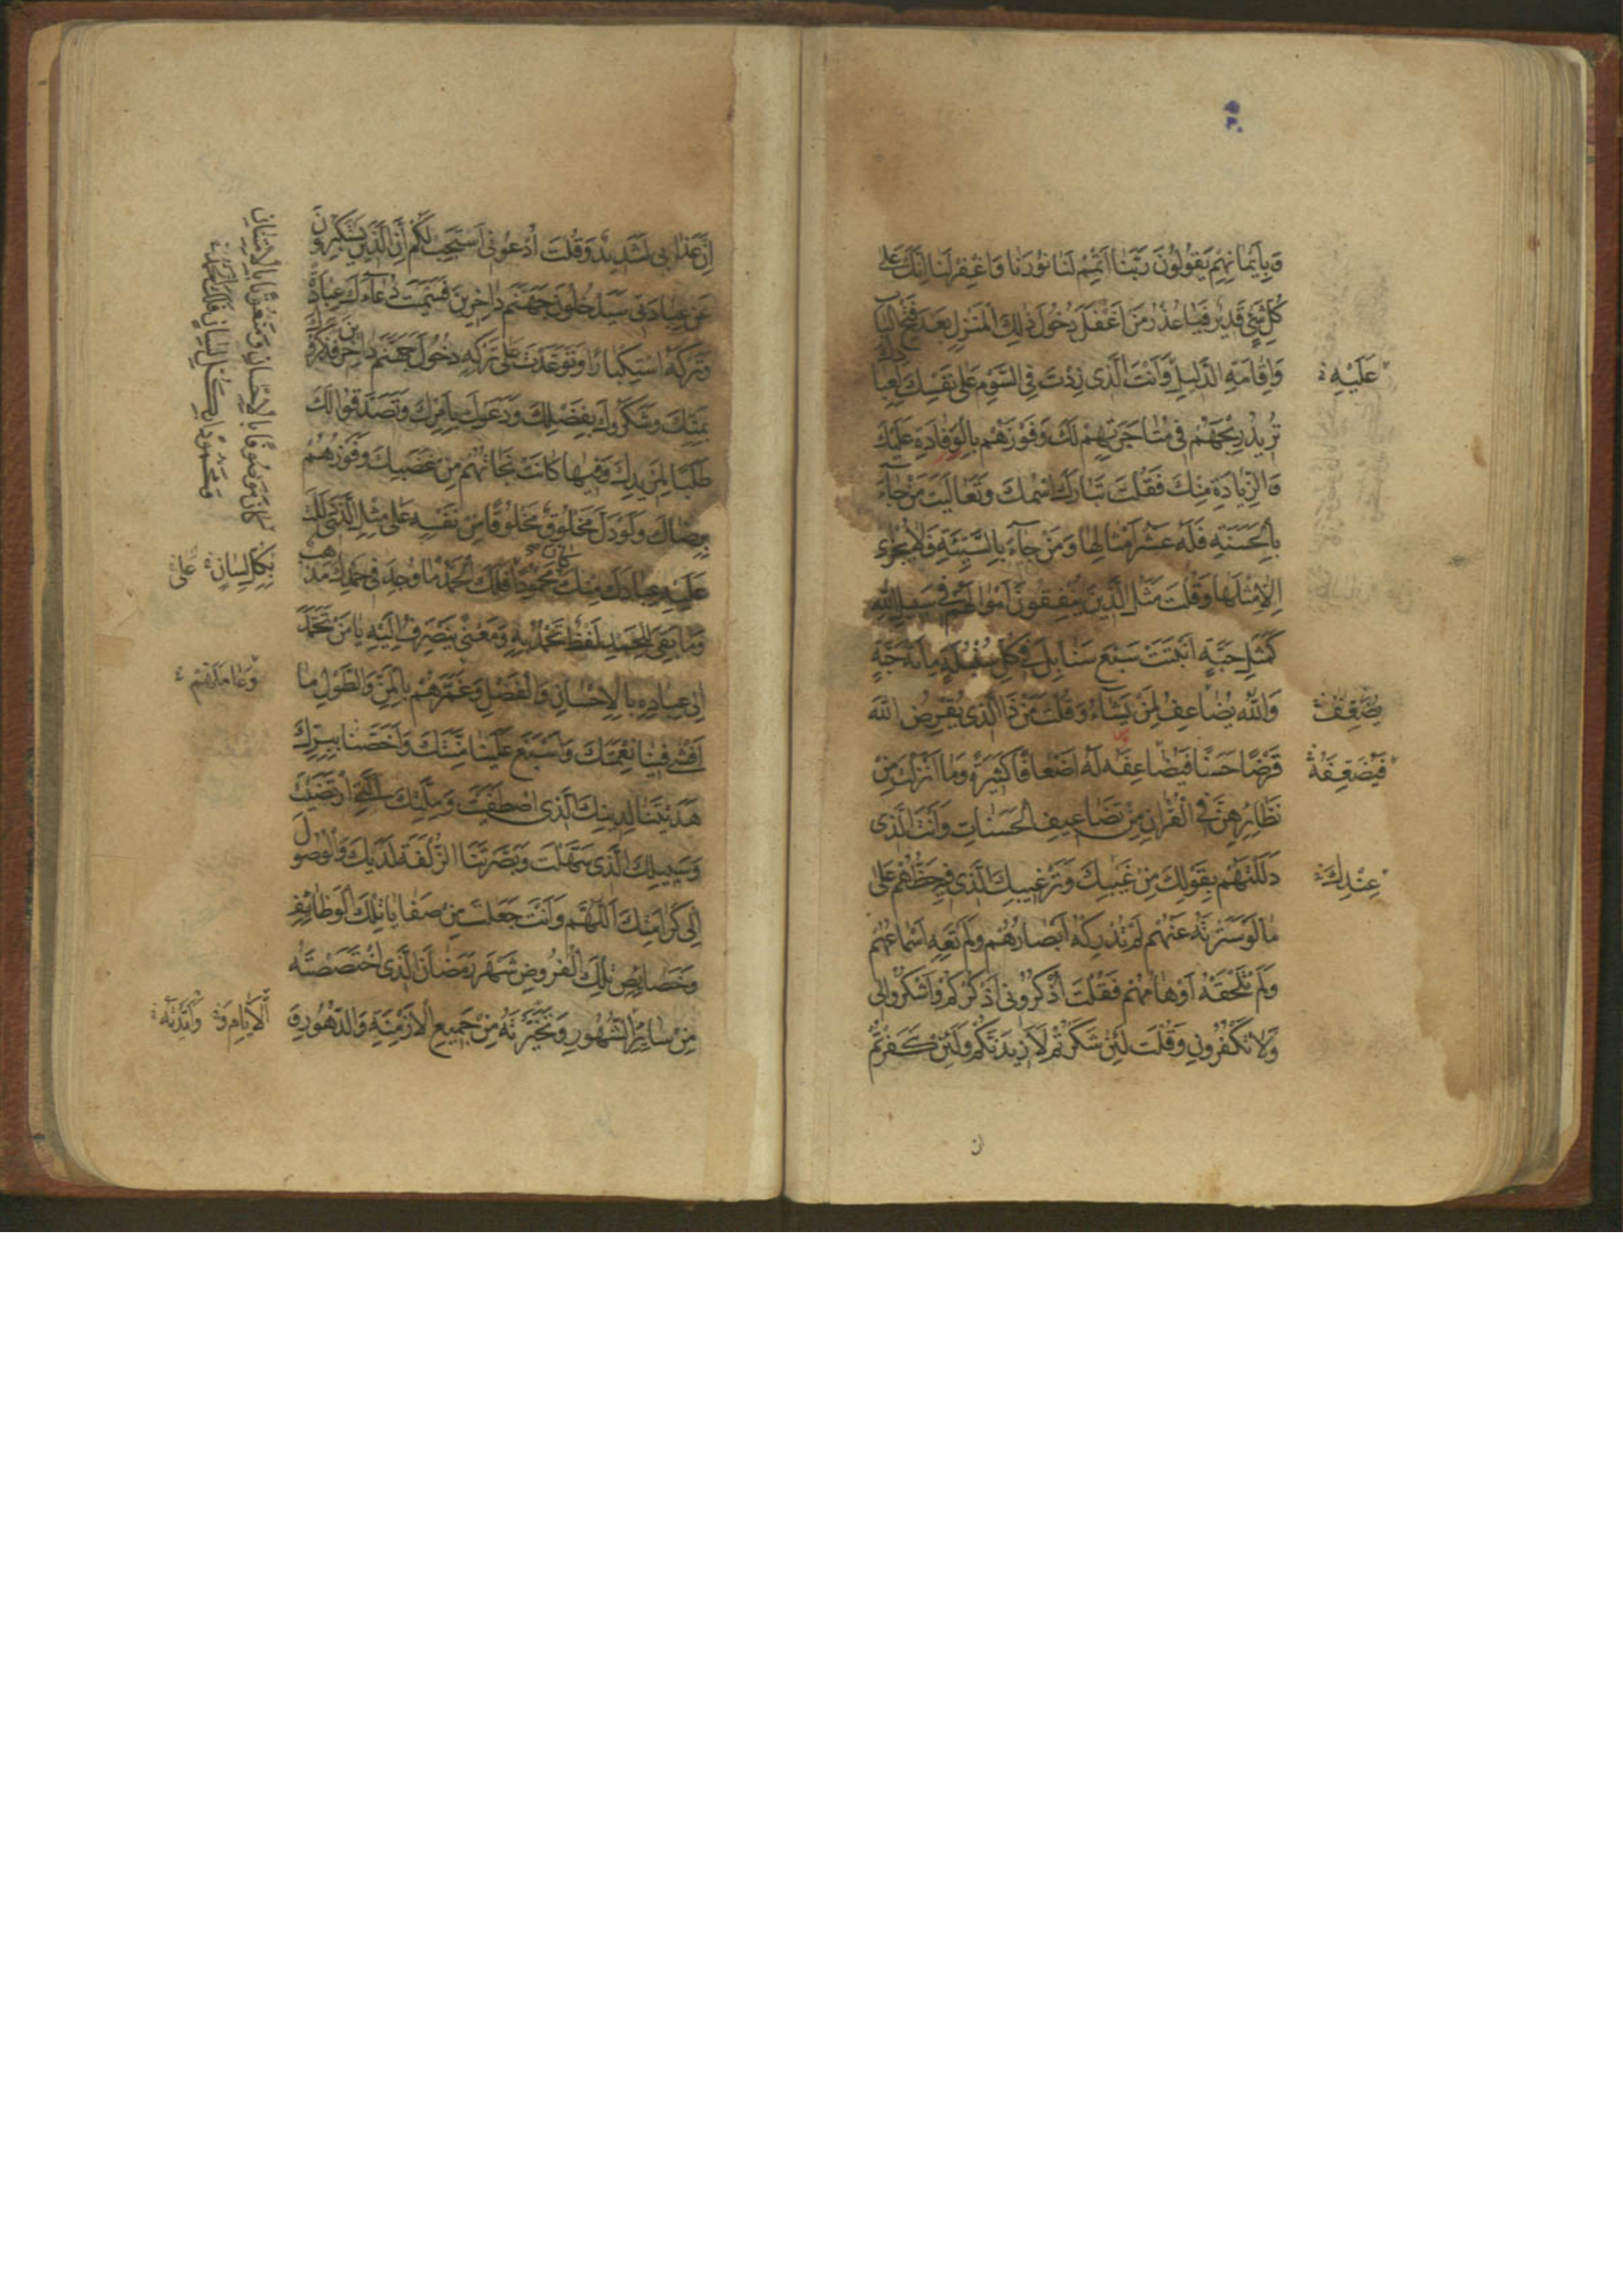 وَبِأَيْمَانِهِمْ يَقُولُونَ رَبَّنَا أَتْمِمْ لَنَا نُورَنَا وَاغْفِرْ لَنَا إِنَّكَ عَلَى
كُلِّ شَيْءٍ قَدِيرٌ فَمَا عُذْرُ مَنْ أَغْفَلَ دُخُولَ ذٰلِكَ الْمَنْزِلِ بَعْدَ فَتْحِ الْبَابِ
وَإِقَامَةِ الدَّلِيلِ وَأَنْتَ الَّذِي زِدْتَ فِي السَّوْمِ عَلَى نَفْسِكَ لِعِبَادِكَ
عَلَيْهِ
تُرِيدُ رِبْحَهُمْ فِي مُتَاجَرَتِهِمْ لَكَ وَفَوْزَهُمْ بِالْوِفَادَةِ عَلَيْكَ
وَالزِّيَادَةِ مِنْكَ فَقُلْتَ تَبَارَكَ اسْمُكَ وَتَعَالَيْتَ مَنْ جَاءَ
بِالْحَسَنَةِ فَلَهُ عَشْرُ أَمْثَالِهَا وَمَنْ جَاءَ بِالسَّيِّئَةِ فَلَا يُجْزَى
إِلَّا مِثْلَهَا وَقُلْتَ مَثَلُ الَّذِينَ يُنْفِقُونَ أَمْوَالَهُمْ فِي سَبِيلِ اللهِ
كَمَثَلِ حَبَّةٍ أَنْبَتَتْ سَبْعَ سَنَابِلَ فِي كُلِّ سُنْبُلَةٍ مِائَةُ حَبَّةٍ
وَاللهُ يُضَاعِفُ لِمَنْ يَشَاءُ وَقُلْتَ مَنْ ذَا الَّذِي يُقْرِضُ اللهَ
يُضَعِّفُ
قَرْضًا حَسَنًا فَيُضَاعِفَهُ لَهُ أَضْعَافًا كَثِيرَةً وَمَا أَنْزَلْتَ مِنْ
فَيُضَعِّفَهُ
نَظَائِرِهِنَّ فِي الْقُرْآنِ مِنْ تَضَاعِيفِ الْحَسَنَاتِ وَأَنْتَ الَّذِي
دَلَلْتَهُمْ بِقَوْلِكَ مِنْ غَيْبِكَ وَتَرْغِيبِكَ الَّذِي فِيهِ حَظُّهُمْ عَلَى
عِنْدِكَ
مَا لَوْ سَتَرْتَهُ عَنْهُمْ لَمْ تُدْرِكْهُ أَبْصَارُهُمْ وَلَمْ تَعِهِ أَسْمَاعُهُمْ
وَلَمْ تَلْحَقْهُ أَوْهَامُهُمْ فَقُلْتَ اذْكُرُونِي أَذْكُرْكُمْ وَاشْكُرُوا لِي
وَلَا تَكْفُرُونِ وَقُلْتَ لَئِنْ شَكَرْتُمْ لَأَزِيدَنَّكُمْ وَلَئِنْ كَفَرْتُمْ
إِنَّ عَذَابِي لَشَدِيدٌ وَقُلْتَ ادْعُونِي أَسْتَجِبْ لَكُمْ إِنَّ الَّذِينَ يَسْتَكْبِرُونَ
عَنْ عِبَادَتِي سَيَدْخُلُونَ جَهَنَّمَ دَاخِرِينَ فَسَمَّيْتَ دُعَاءَكَ عِبَادَةً
وَتَرْكَهُ اسْتِكْبَارًا وَتَوَعَّدْتَ عَلَى تَرْكِهِ دُخُولَ جَهَنَّمَ دَاخِرِينَ فَذَكَرُوكَ
بِمَنِّكَ وَشَكَرُوكَ بِفَضْلِكَ وَدَعَوْكَ بِأَمْرِكَ وَتَصَدَّقُوا لَكَ
طَلَبًا لِمَزِيدِكَ وَفِيهَا كَانَتْ نَجَاتُهُمْ مِنْ غَضَبِكَ وَفَوْزُهُمْ
بِرِضَاكَ وَلَوْ دَلَّ مَخْلُوقٌ مَخْلُوقًا مِنْ نَفْسِهِ عَلَى مِثْلِ الَّذِي دَلَلْتَ
عَلَيْهِ عِبَادَكَ مِنْكَ كَانَ مَحْمُودًا فَلَكَ الْحَمْدُ مَا وُجِدَ فِي حَمْدِكَ مَذْهَبٌ
كَانَ مَوْصُوفًا بِالْإِحْسَانِ وَمَنْعُوتًا بِالْإِمْتِنَانِ
وَمَحْمُودًا بِكُلِّ لِسَانٍ فَلَكَ الْحَمْدُ
بِكُلِّ لِسَانٍ
وَمَا بَقِيَ لِلْحَمْدِ لَفْظٌ تُحْمَدُ بِهِ وَمَعْنًى يَنْصَرِفُ إِلَيْهِ يَا مَنْ تَحَمَّدَ
إِلَى عِبَادِهِ بِالْإِحْسَانِ وَالْفَضْلِ وَغَمَرَهُمْ بِالْمَنِّ وَالطَّوْلِ مَا
وَعَامَلَهُمْ
أَفْشَى فِينَا نِعْمَتَكَ وَأَسْبَغَ عَلَيْنَا مِنَّتَكَ وَأَخَصَّنَا بِبِرِّكَ
هَدَيْتَنَا لِدِينِكَ الَّذِي اصْطَفَيْتَ وَمِلَّتِكَ الَّتِي ارْتَضَيْتَ
وَسَبِيلِكَ الَّذِي سَهَّلْتَ وَبَصَّرْتَنَا الزُّلْفَةَ لَدَيْكَ وَالْوُصُولَ
إِلَى كَرَامَتِكَ اللّٰهُمَّ وَأَنْتَ جَعَلْتَ مِنْ صَفَايَا تِلْكَ الْوَظَائِفِ
وَخَصَائِصِ تِلْكَ الْفُرُوضِ شَهْرَ رَمَضَانَ الَّذِي اخْتَصَصْتَهُ
مِنْ سَائِرِ الشُّهُورِ وَتَخَيَّرْتَهُ مِنْ جَمِيعِ الْأَزْمِنَةِ وَالدُّهُورِ وَ